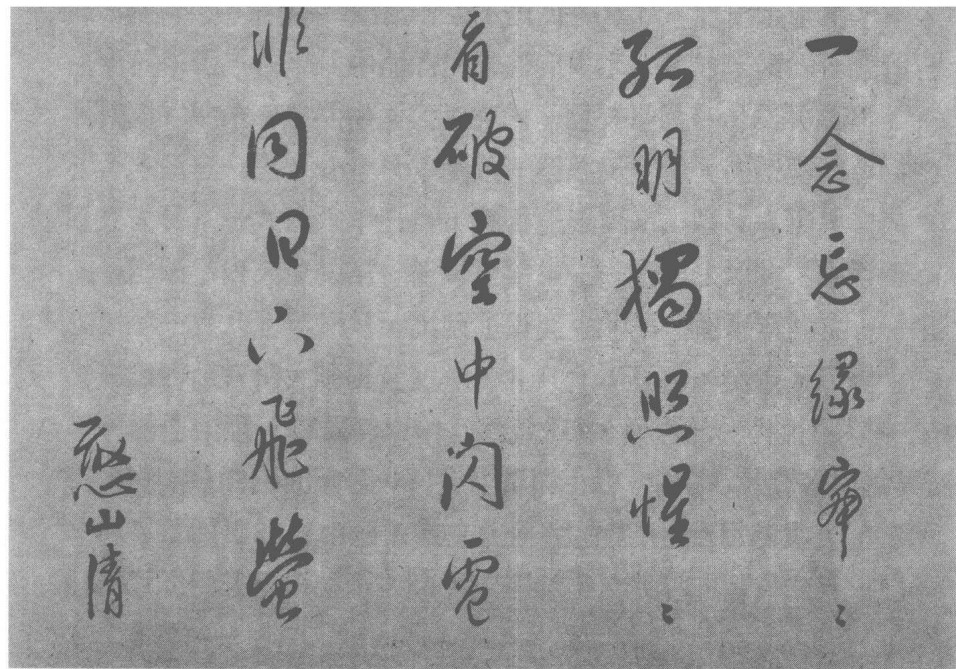 一念忘緣寂〻
孤明獨照惺〻
看破空中閃電
非同日下飛螢
憨山清